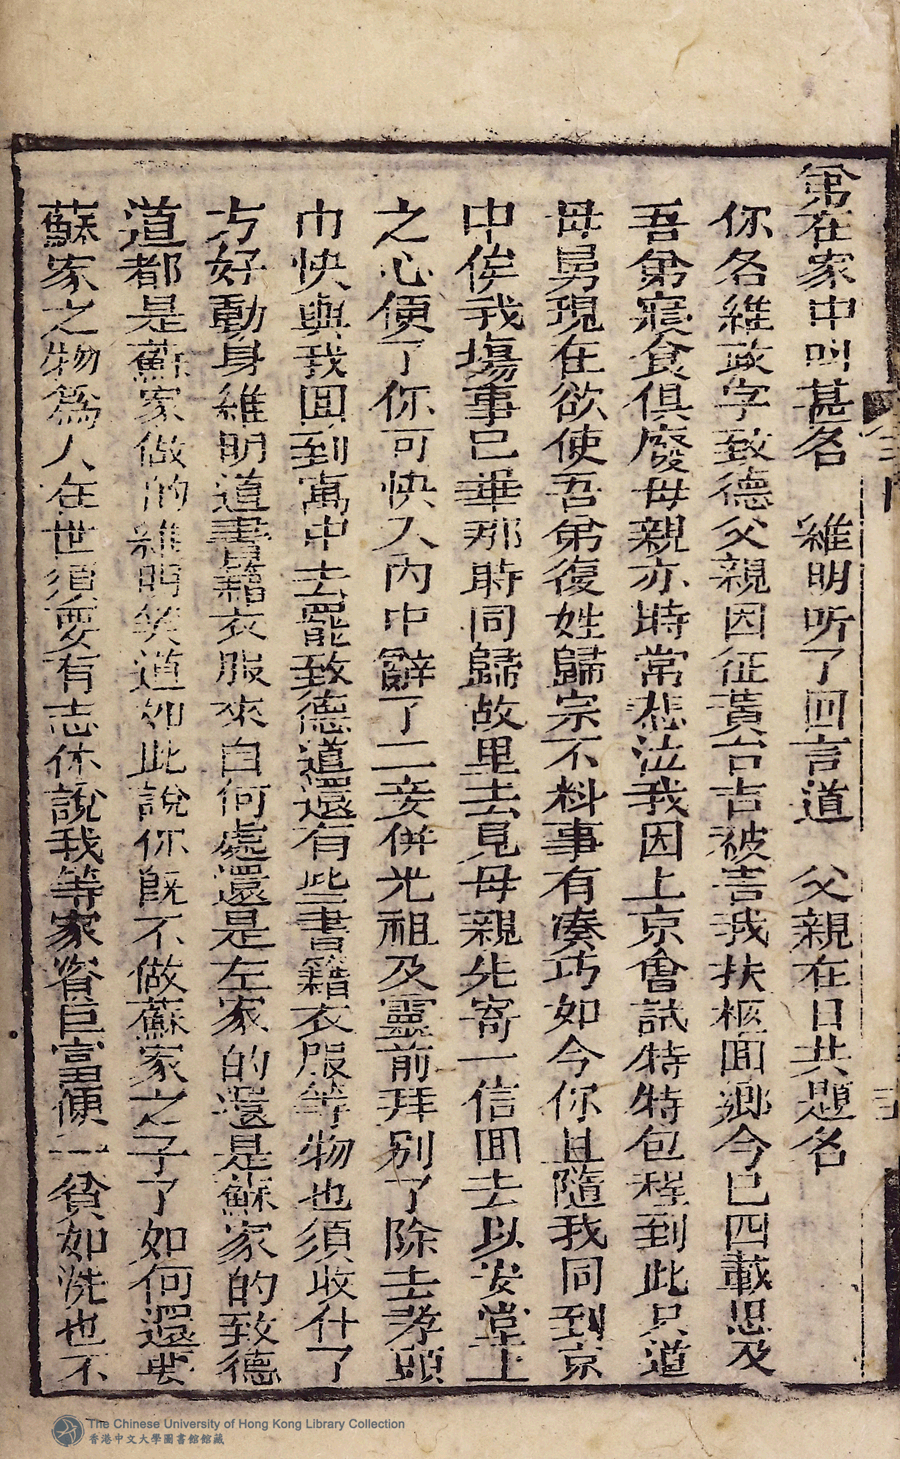 弟在家中叫甚名　維明听了回言道　父親在日共題名
你名維政字致德父親因征黃台吉被害我扶柩囬鄉今已四載思及
吾弟寢食俱廢母親亦時常悲泣我因上京會試特特包程到此只道
母舅現在欲使吾弟復姓歸宗不料事有凑巧如今你且隨我同到京
中俟我塲事已畢那時同歸故里去見母親先寄一信囬去以安堂上
之心便了你可快入內中辭了二妾併光祖及靈前拜别了除去孝頭
巾快與我囬到寓中去罷致德道還有些書籍衣服等物也須收什了
方好動身維明道書籍衣服來自何處還是左家的還是蘇家的致德
道都是蘇家做的維明笑道如此說你既不做蘇家之子了如何還要
蘇家之物爲人在世須要有志休說我等家資巨富便一貧如洗也不
The Chinese University of Hong Kong Library Collection
香港中文大學圖書館館藏